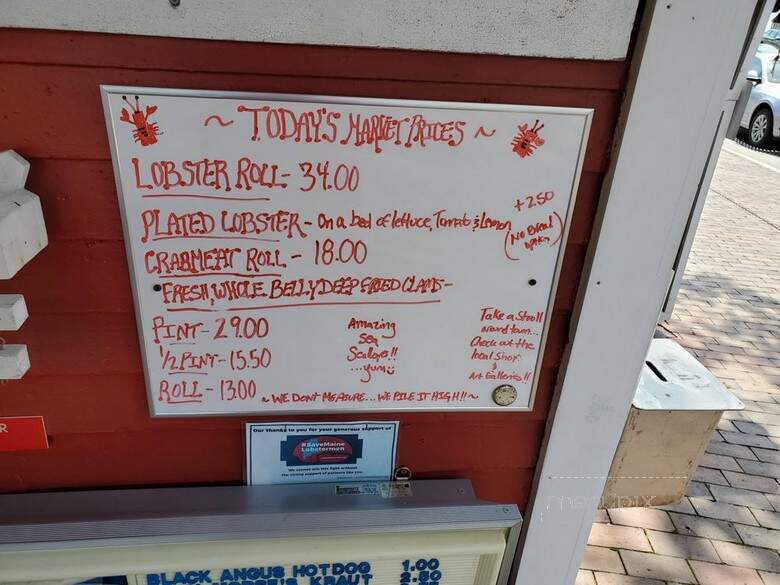 ~ TODAY'S MARKET PRICES ~
LOBSTER ROLL- 34.00
PLATED LOBSTER - On a bed of lettuce, Tomato & Lemon +2.50
(No Bread option)
CRABMEAT ROLL - 18.00
• FRESH, WHOLE BELLY DEEP FRIED CLAMS -
PINT - 29.00
1/2 PINT - 15.50
ROLL - 13.00
Amazing
Sea
Scallops!!
...yum
Take a stroll
around town...
Check out the
local shops
&
Art Galleries!!
~ WE DON'T MEASURE... WE PILE IT HIGH!! ~
Our thanks to you for your generous support of
#SaveMaine
Lobstermen
We cannot win this fight without
the strong support of partners like you.
R
BLACK ANGUS HOTDOG 1.00
KRAUT 2.50
menupix